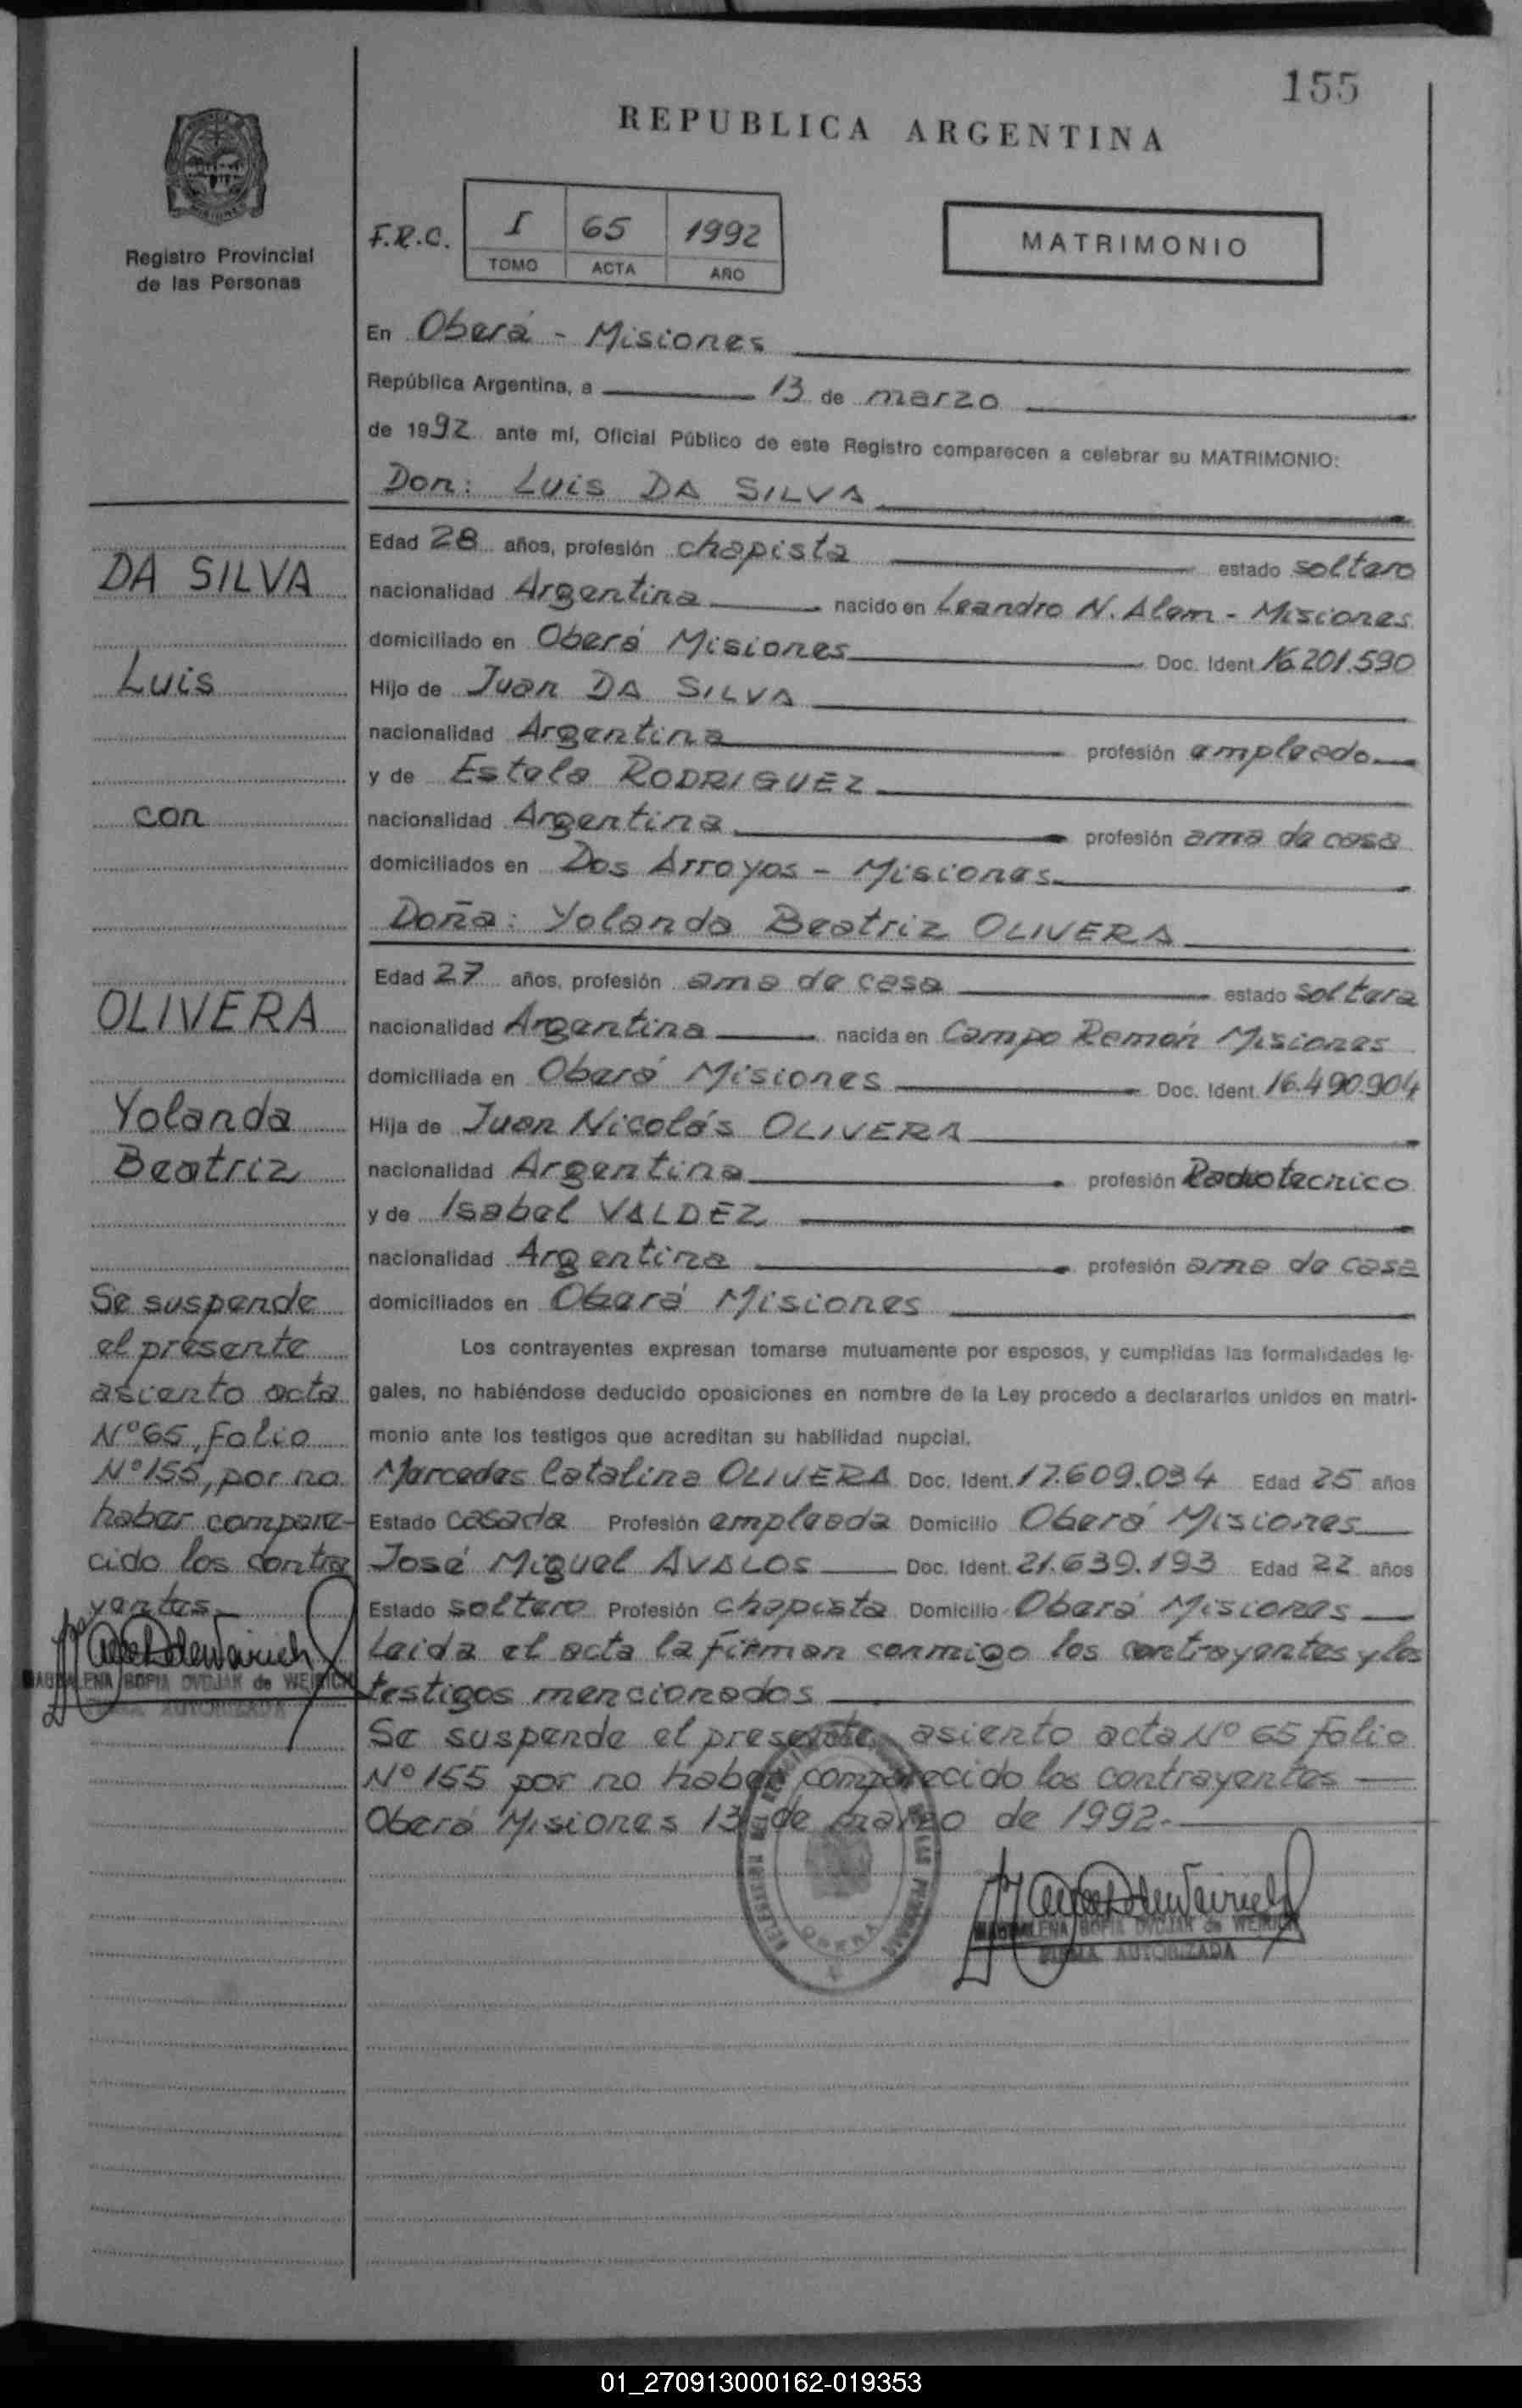 155
REPUBLICA ARGENTINA
Registro Provincial
de las Personas
F.R.C.
I 65 1992
TOMO ACTA AÑO
MATRIMONIO
En Oberá - Misiones
República Argentina, a 13 de marzo
de 1992 ante mí, Oficial Público de este Registro comparecen a celebrar su MATRIMONIO:
Don: Luis DA SILVA
Edad 28 años, profesión chapista estado soltero
nacionalidad Argentina nacido en Leandro N. Alem - Misiones
domiciliado en Oberá Misiones Doc. Ident. 16.201.590
Hijo de Juan DA SILVA
nacionalidad Argentina profesión empleado
y de Estela RODRIGUEZ
nacionalidad Argentina profesión ama de casa
domiciliados en Dos Arroyos - Misiones
Doña: Yolanda Beatriz OLIVERA
Edad 27 años, profesión ama de casa estado soltera
nacionalidad Argentina nacida en Campo Ramón Misiones
domiciliada en Oberá Misiones Doc. Ident. 16.490.904
Hija de Juan Nicolás OLIVERA
nacionalidad Argentina profesión Radiotecnico
y de Isabel VALDEZ
nacionalidad Argentina profesión ama de casa
domiciliados en Oberá Misiones
Los contrayentes expresan tomarse mutuamente por esposos, y cumplidas las formalidades le-
gales, no habiéndose deducido oposiciones en nombre de la Ley procedo a declararlos unidos en matri-
monio ante los testigos que acreditan su habilidad nupcial.
Mercedes Catalina OLIVERA Doc. Ident. 17.609.034 Edad 25 años
Estado casada Profesión empleada Domicilio Oberá Misiones
José Miguel AVALOS Doc. Ident. 21.639.193 Edad 22 años
Estado soltero Profesión chapista Domicilio Oberá Misiones
Leida el acta la firman conmigo los contrayentes y los
testigos mencionados
Se suspende el presente asiento acta Nº 65 Folio
Nº 155 por no haber comparecido los contrayentes
Oberá Misiones 13 de marzo de 1992.-
MAGDALENA SOFIA DVOJAK de WEIRICH
FIRMA AUTORIZADA
OBERA
DA SILVA
Luis
con
OLIVERA
Yolanda
Beatriz
Se suspende
el presente
asiento acta
Nº 65, Folio
Nº 155, por no
haber compare-
cido los contra
yentes.-
MAGDALENA SOFIA DVOJAK de WEIRICH
FIRMA AUTORIZADA
01_270913000162-019353